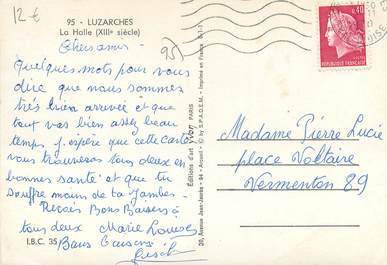 12 €
95 - LUZARCHES
La Halle (XIIIe siècle)
95
Chers amis
Quelques mots pour vous
dire que nous sommes
très bien arrivée et que
tout vas bien assez beau
temps j. espère que cette carte
vous trouveras tous deux en
bonnes santé et que tu
souffre moins de ta jambe.
Recois Bons Baisers à
tous deux Marie Louise
Bons Baisers
I.B.C. 35
Editions d'art yvon PARIS
20, Avenue Jean-Jaurès - 94 - Arcueil - © by S.P.A.D.E.M. - Imprimé en France
0,40
REPUBLIQUE FRANÇAISE
Madame Pierre Lucie
place Voltaire
Vermenton 89